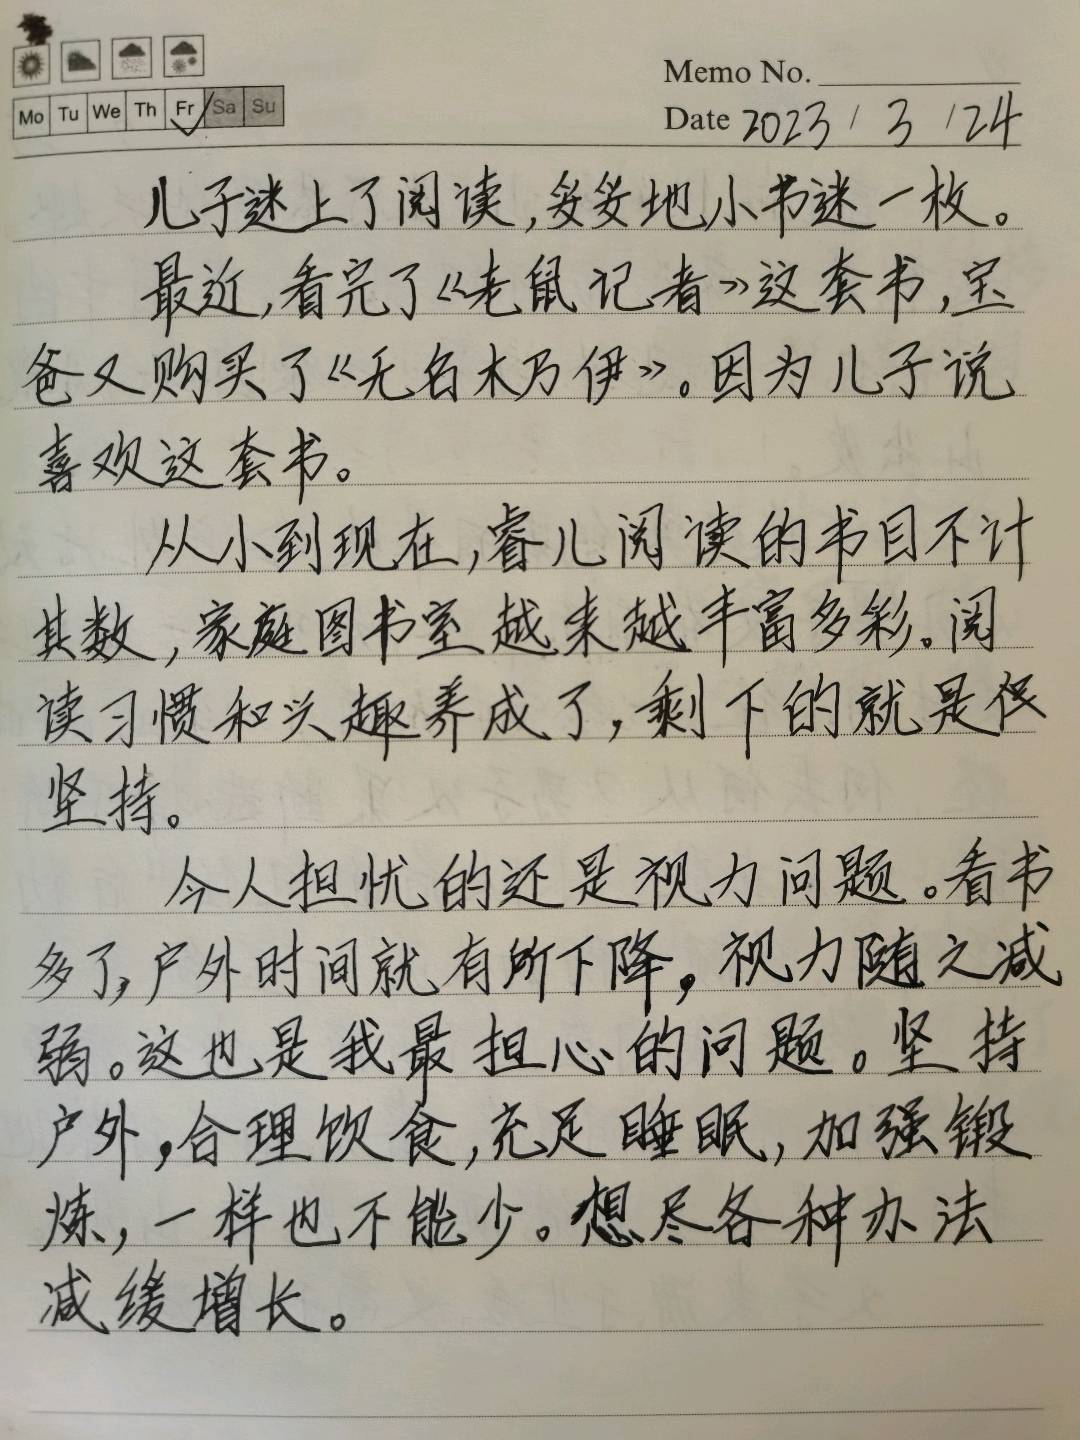 Memo No.
Mo Tu We Th Fr Sa Su
Date 2023 / 3 / 24
儿子迷上了阅读,妥妥地小书迷一枚。
最近,看完了《老鼠记者》这套书,宝
爸又购买了《无名木乃伊》。因为儿子说
喜欢这套书。
从小到现在,睿儿阅读的书目不计
其数,家庭图书室越来越丰富多彩。阅
读习惯和兴趣养成了,剩下的就是保
坚持。
令人担忧的还是视力问题。看书
多了,户外时间就有所下降,视力随之减
弱。这也是我最担心的问题。坚持
户外,合理饮食,充足睡眠,加强锻
炼,一样也不能少。想尽各种办法
减缓增长。